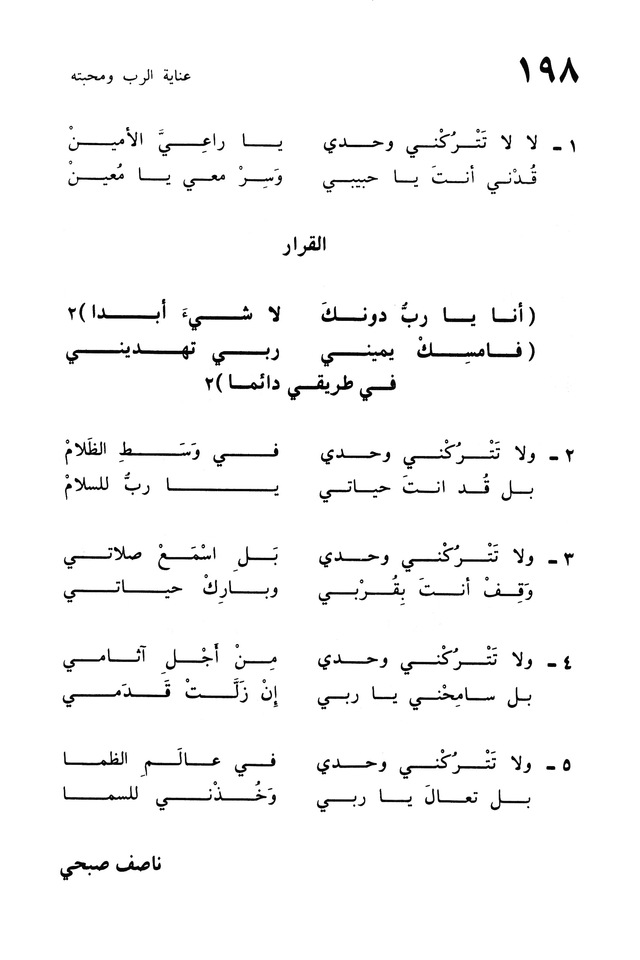 ١٩٨
عناية الرب ومحبته
١ - لا لا تَتْرُكْني وحدي يا راعِيَّ الأمينْ
قُدْني أنتَ يا حبيبي وَسِرْ معي يا مُعينْ
القرار
(أنا يا ربُّ دونكَ لا شيءَ أبدا)٢
(فامسِكْ يميني ربي تهديني
في طريقي دائما)٢
٢ - ولا تَتْرُكْني وحدي في وَسَطِ الظَلامْ
بل قُد انتَ حياتي يا ربُّ للسلامْ
٣ - ولا تَتْرُكْني وحدي بَلِ اسْمَعْ صلاتي
وَقِفْ أنتَ بِقُرْبي وبارِكْ حياتي
٤ - ولا تَتْرُكْني وحدي مِنْ أَجْلِ آثامي
بل سامِحْني يا ربي إنْ زَلَّتْ قَدَمي
٥ - ولا تَتْرُكْني وحدي في عالَمِ الظما
بل تعالَ يا ربي وَخُذْني للسما
ناصف صبحي